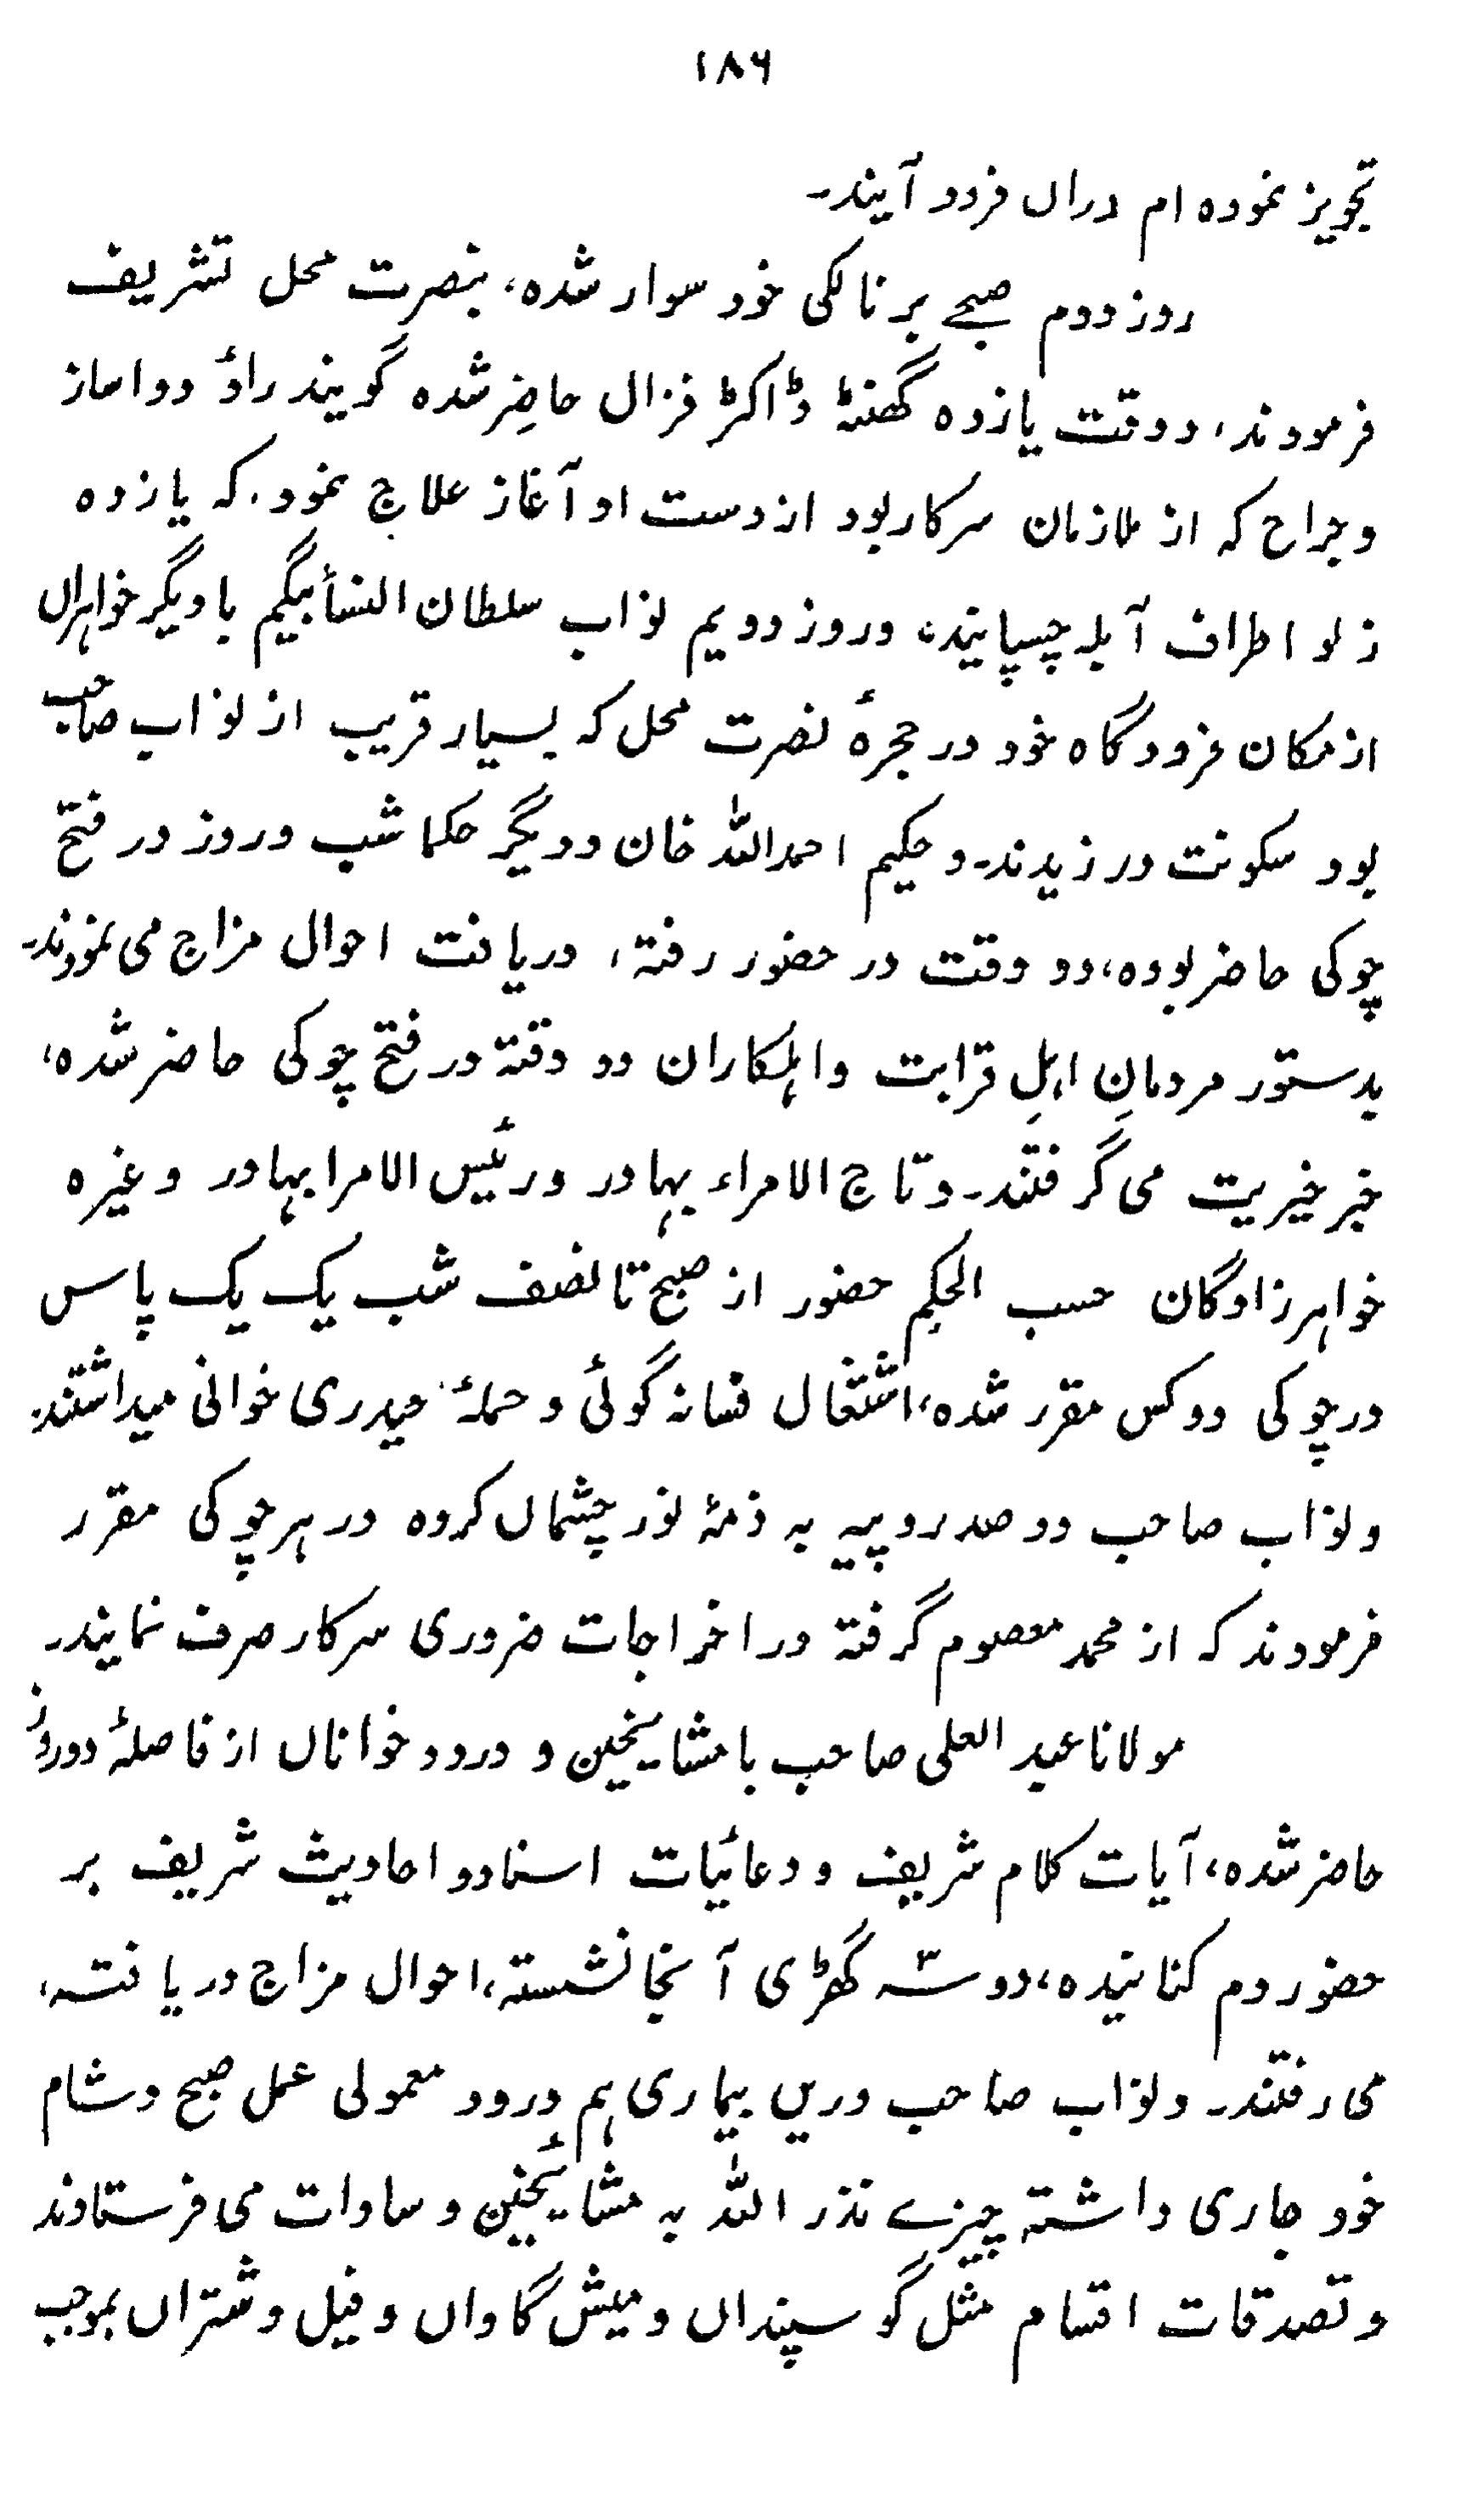 ۱۸۶
تجویز نموده ام دراں فرود آیند۔
روز دوم صبحے بر نالکی خود سوار شده، بنصرت محل تشریف
فرمودند، ووقت یازده گھنٹہ ڈاکٹر فزال حاضِر شده گویند راؤ دوا ساز
وجراح که از ملازمان سرکار بود از دست او آغاز علاج نمود. که یازده
زلو اطراف آبلہ چسپایند، وروز دویم نواب سلطان النسأ بیگیم با دیگر خواہراں
از مکان فرودگاه خود در حجرۂ نصرت محل که بسیار قریب از نواب صاحب
بود سکونت ورزیدند۔ و حکیم احمدالله خان و دیگر حکما شب وروز در فتح
چوکی حاضر بوده، دو وقت در حضور رفته، دریافت احوال مزاج می نمودند۔
بدستور مردمانِ اہلِ قرابت و اہلکاران دو وقتہ در فتح چوکی حاضر شده،
خبر خیریت می گرفتند۔ و تاج الامراء بہادر ورئیس الامرا بہادر وغیره
خواہرزادگان حسب الحکم حضور از صبح تا نصف شب یک یک پاس
در چوکی دو کس مقرر شده، اشتغال فسانہ گوئی و حملۂ حیدری خوانی میداشتند.
ونواب صاحب دو صد روپیہ بہ ذمۂ نور چشماں کرده در ہر چوکی مقرر
فرمودند که از محمد معصوم گرفتہ در اخراجات ضروری سرکار صرف نمایند۔
مولانا عبد العلی صاحب با مشایخین و درود خواناں از فاصلۂ دوروز
حاضر شده، آیات کلام شریف و دعائیات اسناد و احادیث شریف بر
حضور دم کنانیده، دو سہ گھڑی آنجا نشستہ، احوال مزاج دریافتہ،
می رفتند۔ ونواب صاحب دریں بیماری ہم درود معمولی عمل صبح وشام
خود جاری داشتہ چیزے نذر الله بہ مشایٔخین و سادات می فرستادند
وتصدقات اقسام مثل گوسپنداں و میش گاواں و فیل و شتراں بموجب